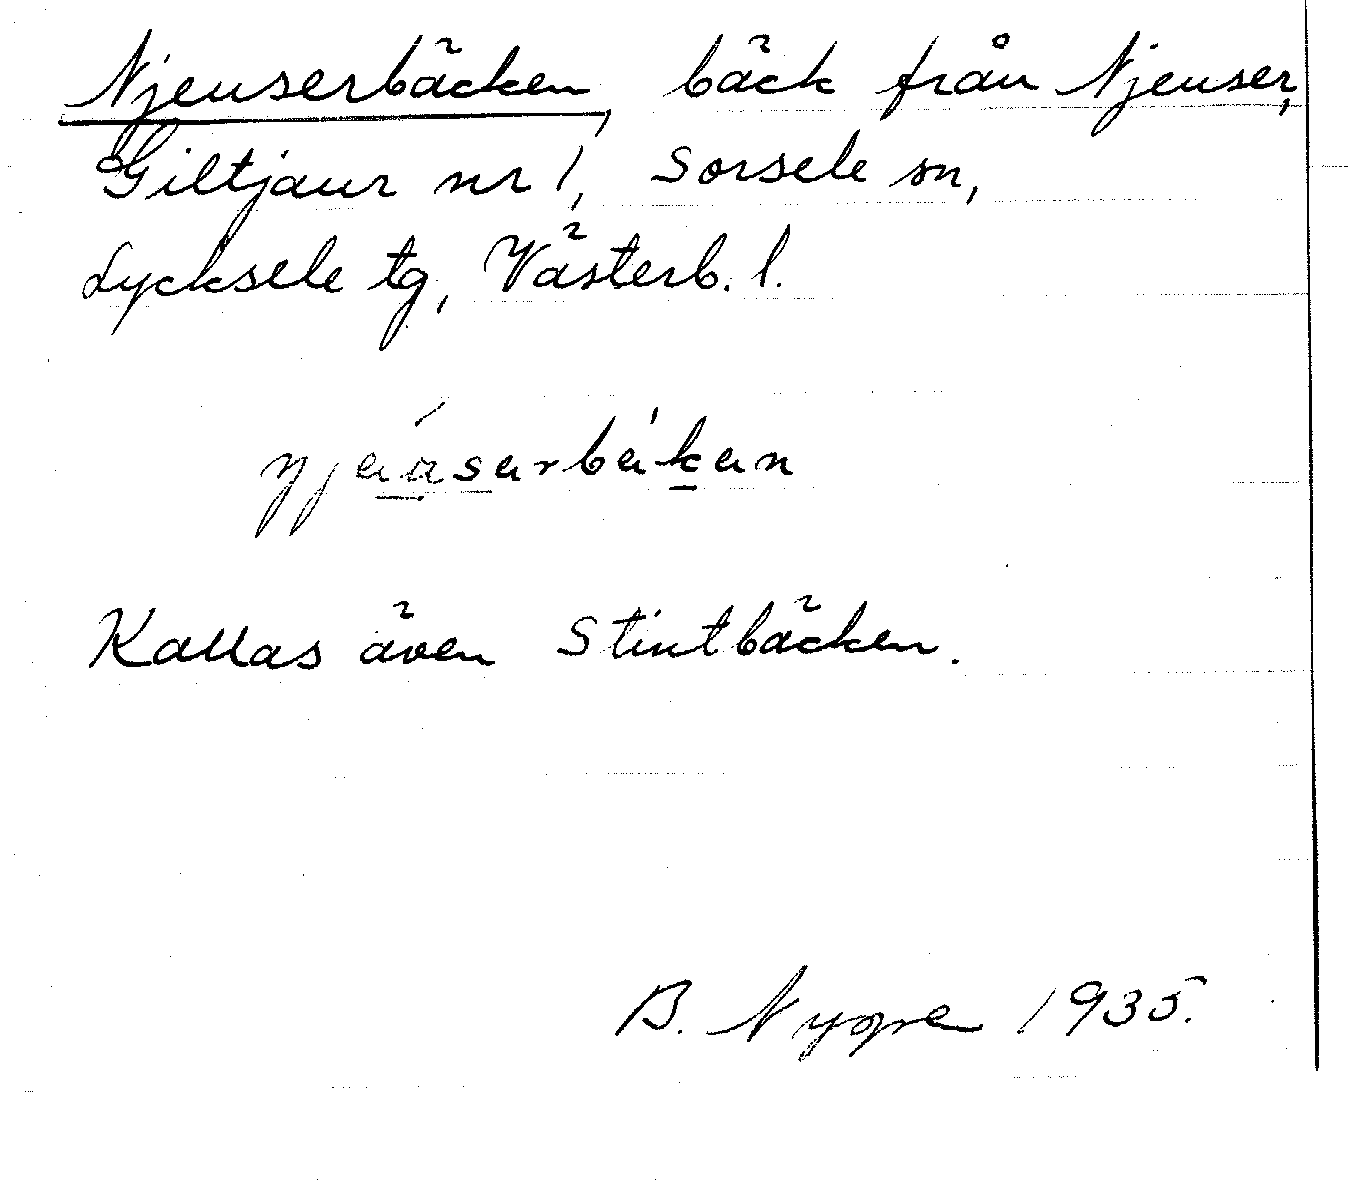 Njeuserbäcken, bäck från Njeuser,
Giltjaur nr 1, Sorsele sn,
Lycksele tg, Västerb. l.
Kallas även Stintbäcken.
B. 1935.